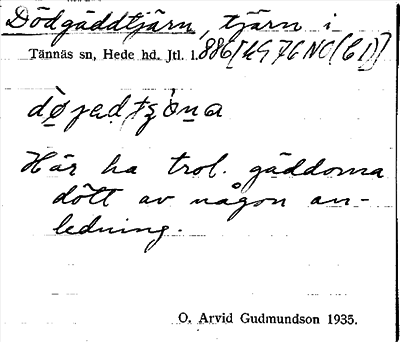 Dödgäddtjärn, tjärn i
Tännäs sn, Hede hd. Jtl. l.
Här ha trol. gäddorna
dött av någon an-
ledning.
O. Arvid Gudmundson 1935.